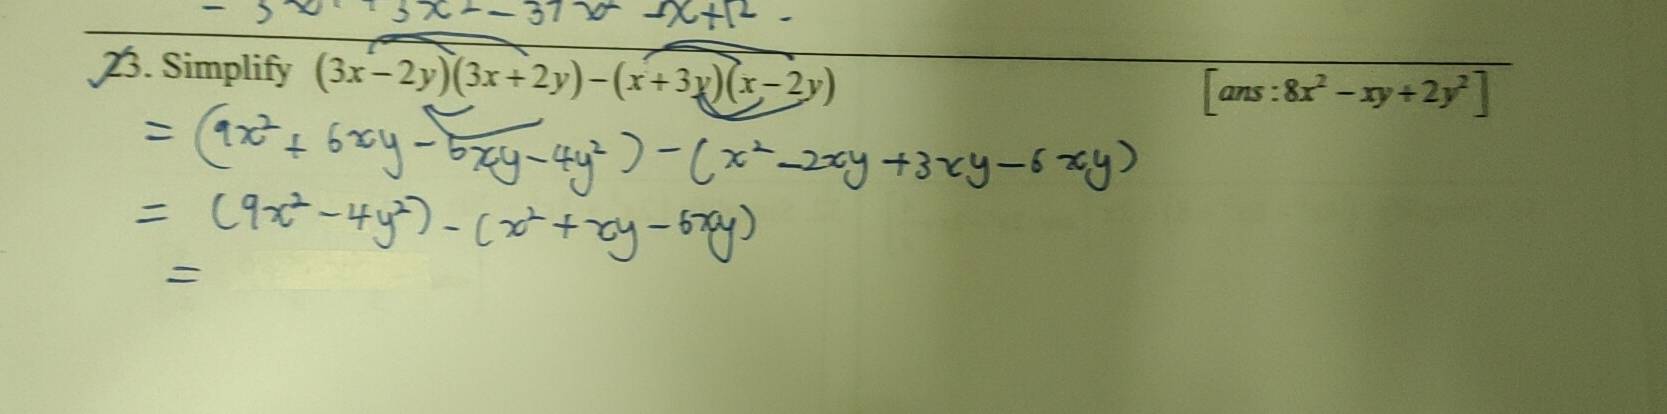 23. Simplify (3x – 2y)(3x + 2y) – (x + 3y)(x – 2y) [ans : 8x² – xy + 2y²]
= (9x² + 6xy – 6xy – 4y²) – (x² – 2xy + 3xy – 6xy)
= (9x² – 4y²) – (x² + xy – 6xy)
=